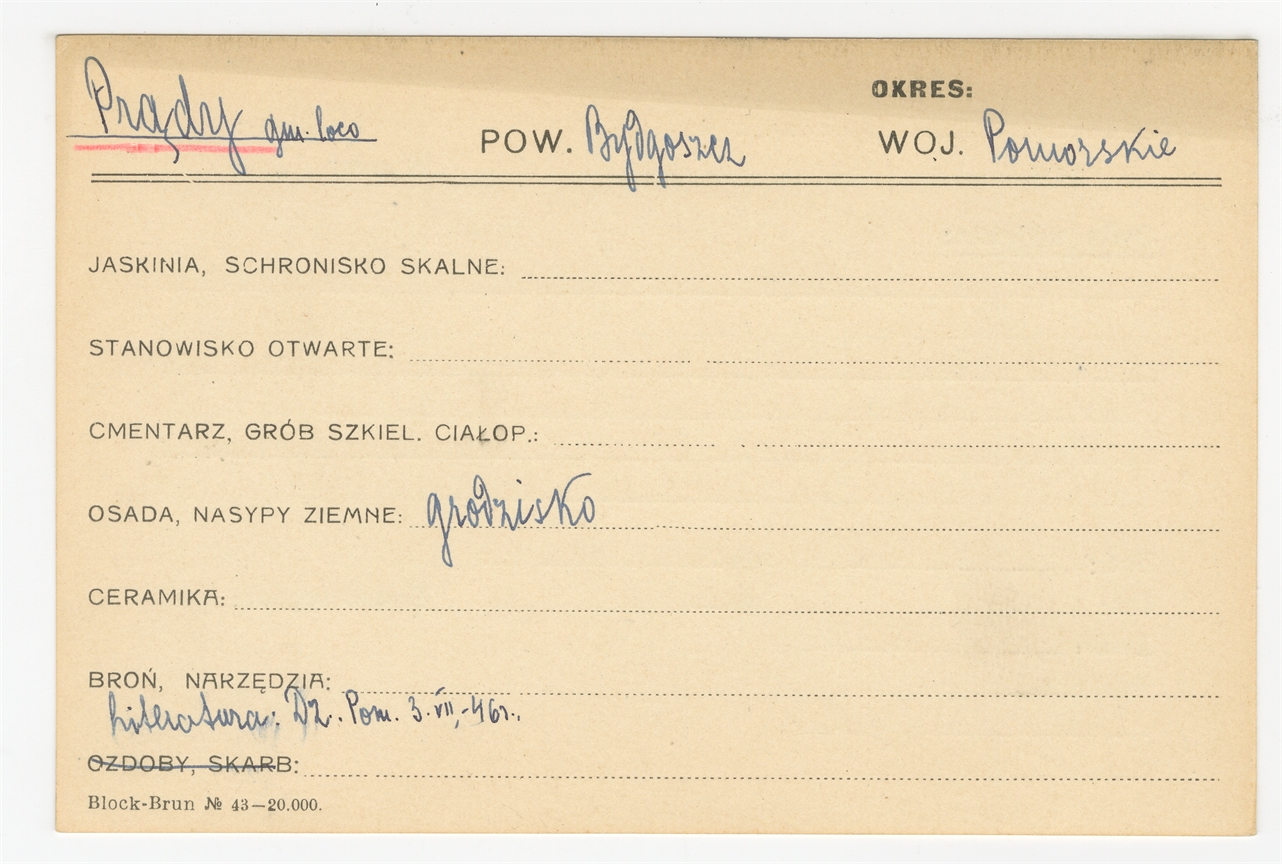 OKRES:
Prądy gm. loco POW. Bydgoszcz WOJ. Pomorskie
JASKINIA, SCHRONISKO SKALNE:
STANOWISKO OTWARTE:
CMENTARZ, GRÓB SZKIEL. CIAŁOP.:
OSADA, NASYPY ZIEMNE: grodzisko
CERAMIKA:
BROŃ, NARZĘDZIA:
Literatura: Dz. Pom. 3.VII.-46r.
OZDOBY, SKARB:
Block-Brun № 43—20.000.